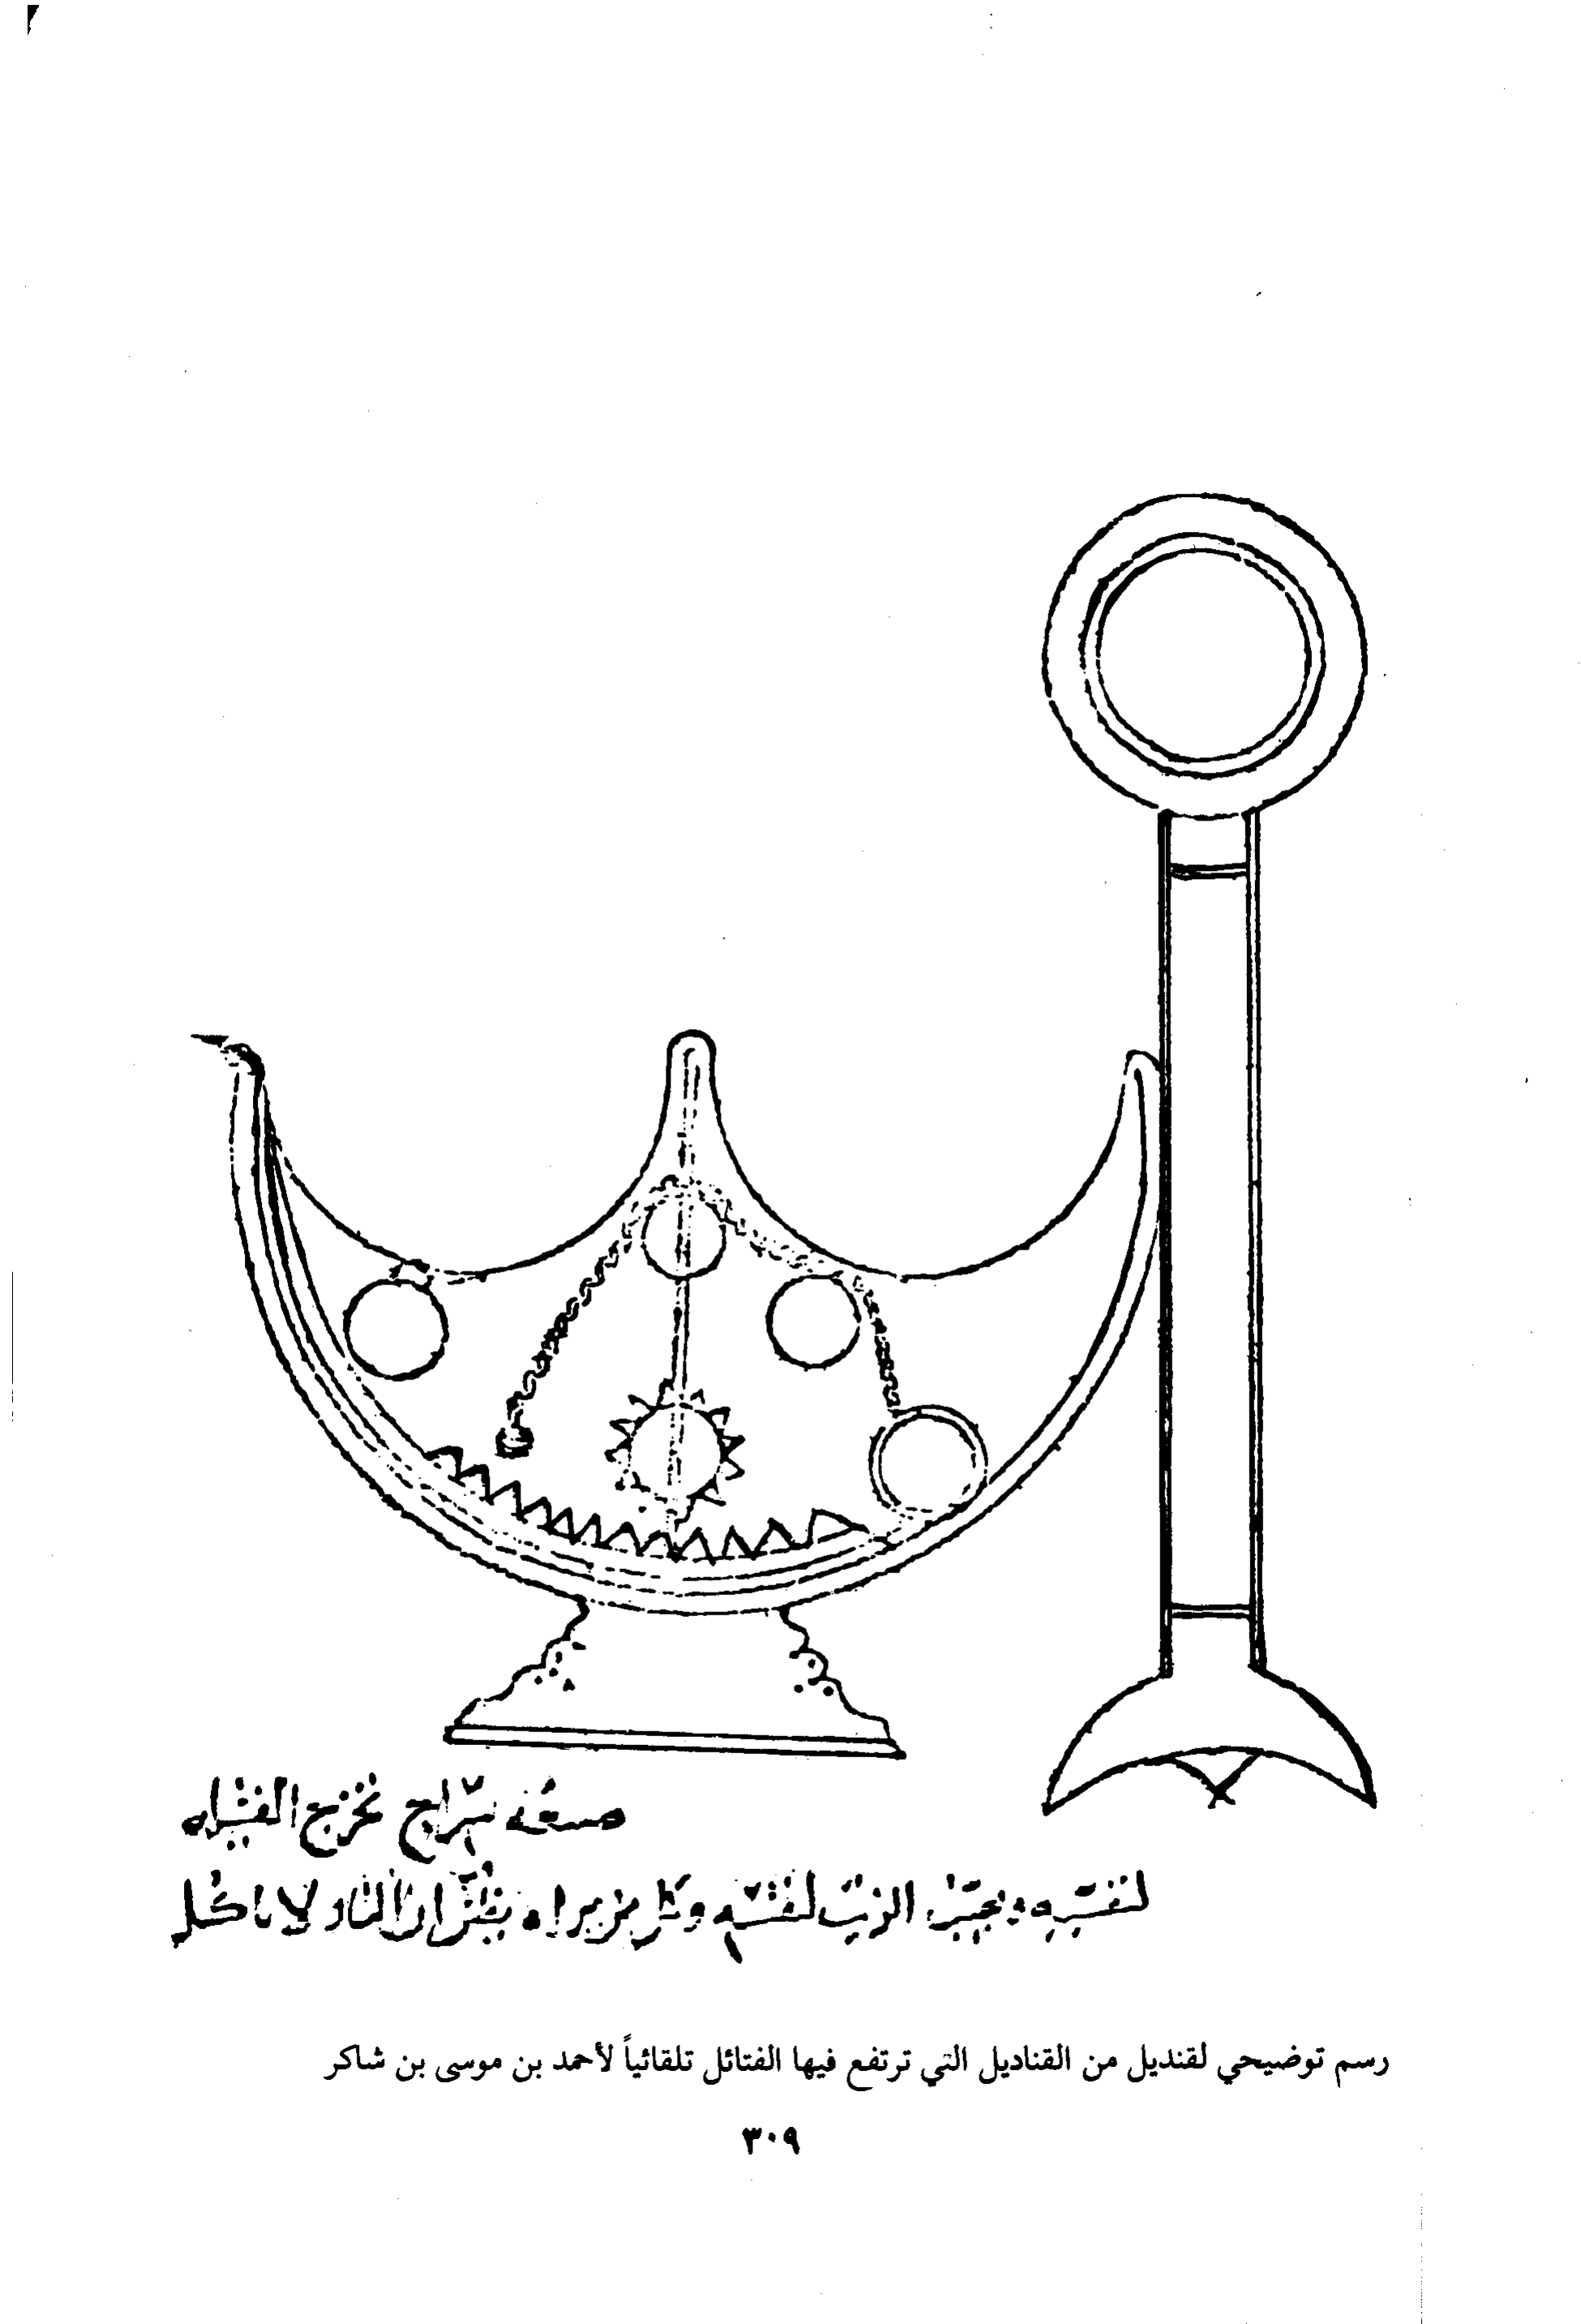 صنعة سراج يخرج الفتيلة
لنفسه ويجيب الزيت لنفسه وكل من يراه يظن ان النار لا تاكل
رسم توضيحي لقنديل من القناديل التي ترتفع فيها الفتائل تلقائياً لأحمد بن موسى بن شاكر
٣٠٩